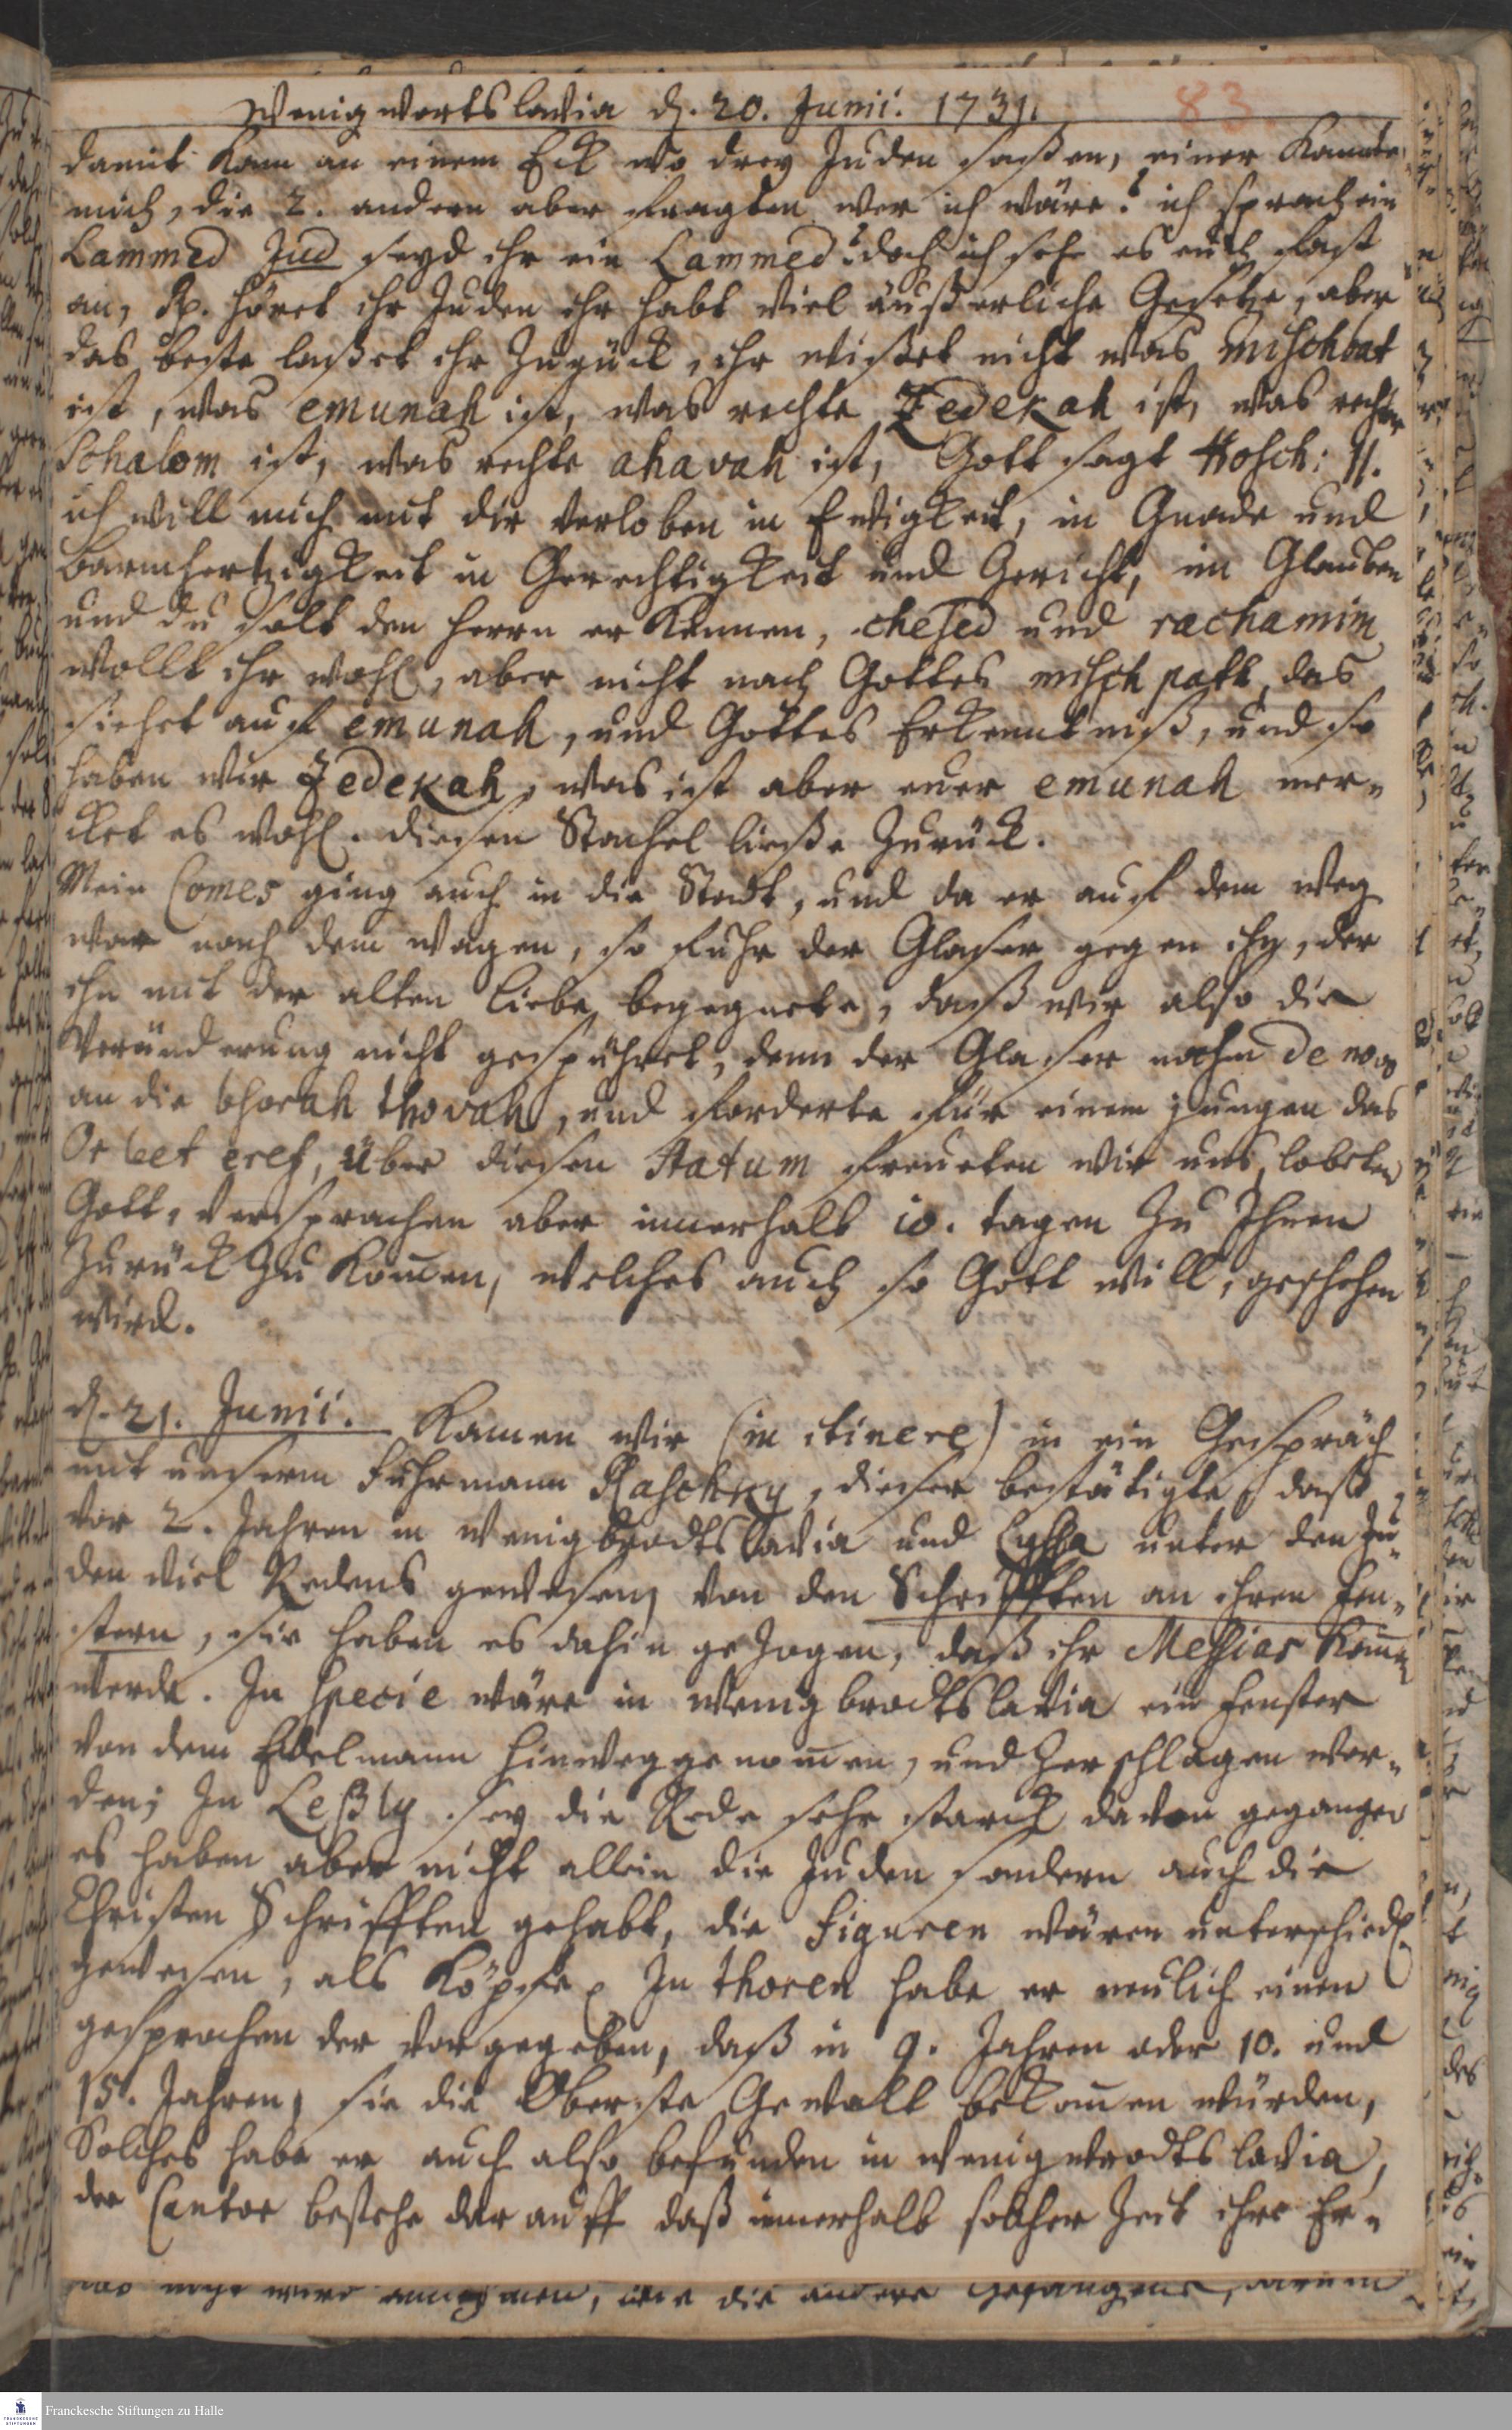 Wenigwortslavia d. 20. Junii. 1731.
83
damit kam an einem Eck wo drey Juden saßen, einer kannte
mich, die 2. andern aber fragten wer ich wäre? ich sprach ein
Lammed Jud seyd ihr ein Lammed? doch ich sehe es euch fast
an, Rp. höret ihr Juden ihr habt viel äußerliche Gesetze, aber
das beste laßet ihr zurück, ihr wißet nicht was mischbat
ist, was emunah ist, was rechte Zedekah ist, was rechter
Schalom ist, was rechte ahavah ist, Gott sagt Hosch: II.
ich will mich mit dir verloben in Ewigkeit, in Gnade und
Barmhertzigkeit in Gerechtigkeit und Gericht, im Glauben
und du solt den Herrn erkennen, chesed und rachamim
wollt ihr wohl, aber nicht nach Gottes mischpatt, das
siehet auf emunah, und Gottes Erkenntniß, und so
haben wir Zedekah, was ist aber euer emunah mer-
cket es wohl. diesen Stachel ließe zurück.
Mein Comes ging auch in die Stadt, und da er auf dem Weg
war nach dem wagen, so fuhr der Glaser gegen ihn, der
ihn mit der alten Liebe begegnete, daß wir also die
Veränderung nicht gespühret, denn der Glaser nahm de novo
an die bhorah thovah, und forderte für einem jungen das
Or leet eref, über diesen Statum freueten wir uns, lobeten
Gott, versprachen aber innerhalb 10. tagen zu Ihnen
zurück zu kommen, welches auch so Gott will, geschehen
wird.
d. 21. Junii. kamen wir (in itinere) in ein Gespräch
mit unserm Fuhrmann Raschky, dieser bestätigte, daß
vor 2. Jahren in Wenigbrodtslavia und Lyssa unter den Ju-
den viel Redens gewesen, von den Schrifften an ihren Fen-
stern, sie haben es dahin gezogen, daß ihr Messias kommen
werde. In specie wäre in Wenigbrodtslavia ein Fenster
von dem Edelmann hinweggenommen, und zerschlagen wor-
den; In Leßly sey die Rede sehr starck davon gegangen
es haben aber nicht allein die Juden sondern auch die
Christen Schrifften gehabt, die Figuren wären unterschiedl.
gewesen, als Köpfe In Thoren habe er neulich einen
gesprochen der vorgegeben, daß in 9. Jahren oder 10. und
15. Jahren, sie die Oberste Gewalt bekommen würden,
Solches habe er auch also befunden in Wenigwrodtslavia,
der Cantor bestehe darauff daß innerhalb solcher Zeit ihre Er-
die andere Gefangene, darum
Franckesche Stiftungen zu Halle